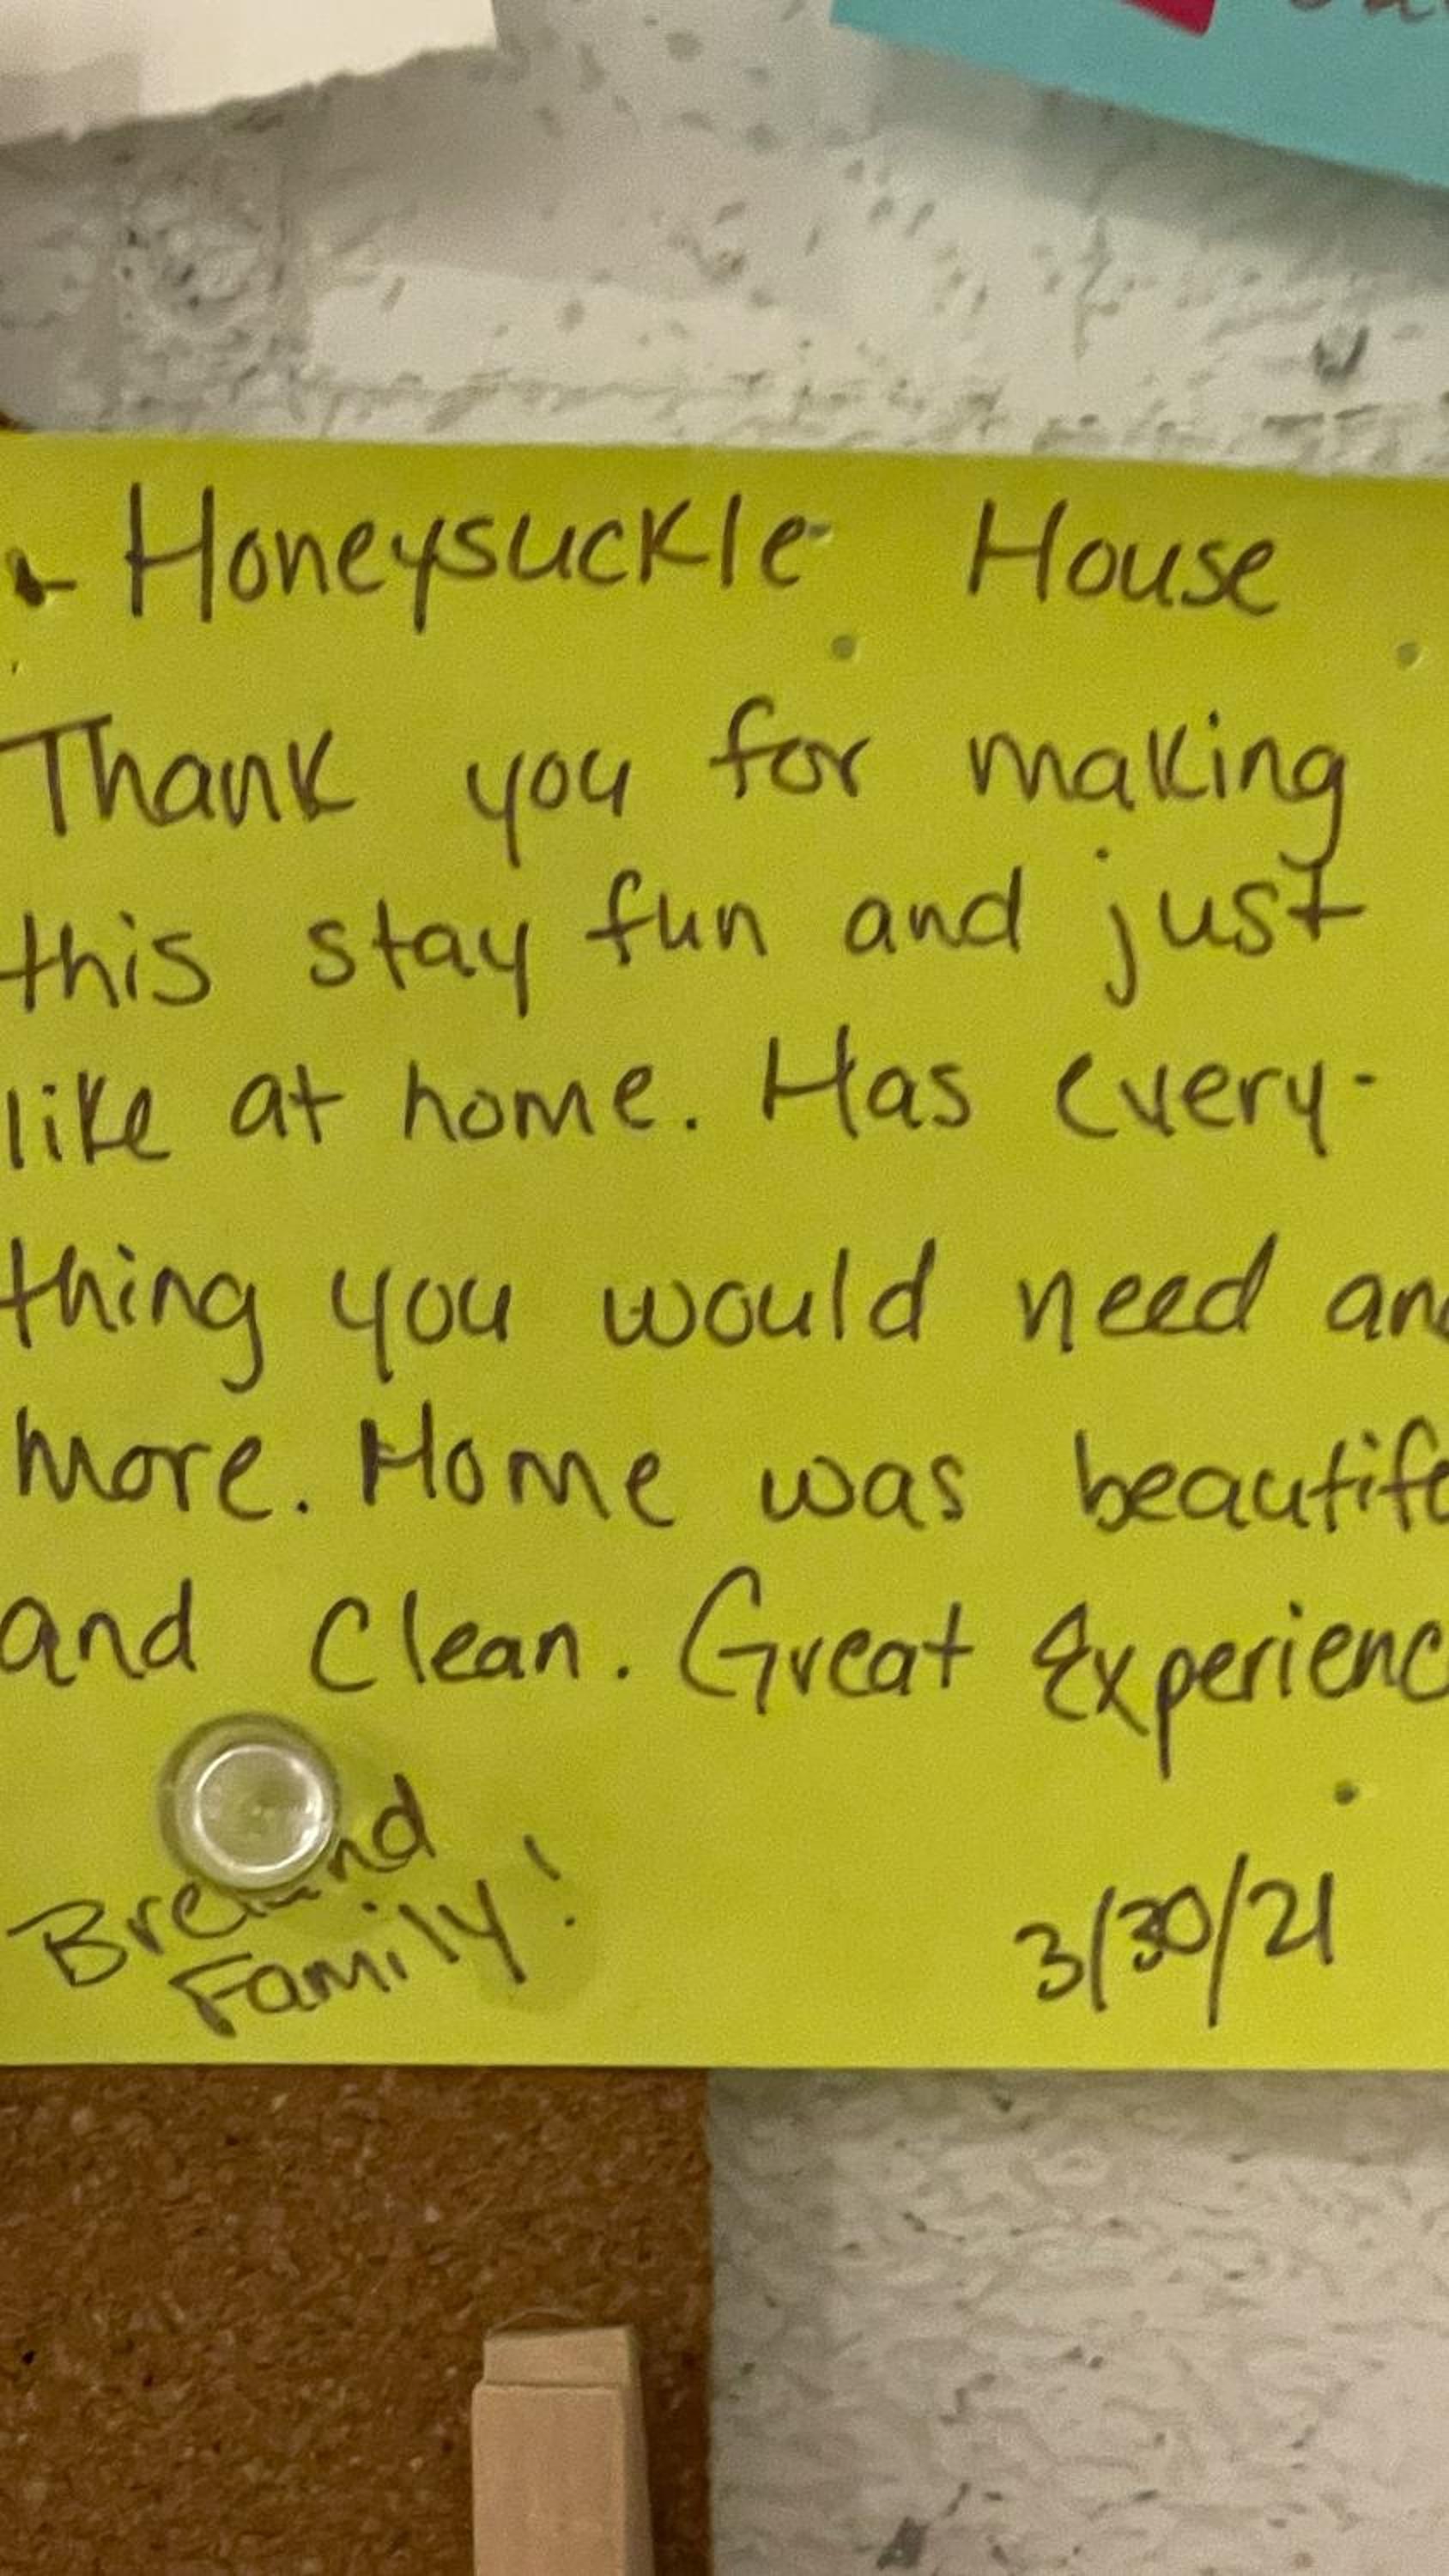 - Honeysuckle House
Thank you for making
this stay fun and just
like at home. Has every-
thing you would need an
more. Home was beautif
and Clean. Great Experienc
Family!
3/30/21